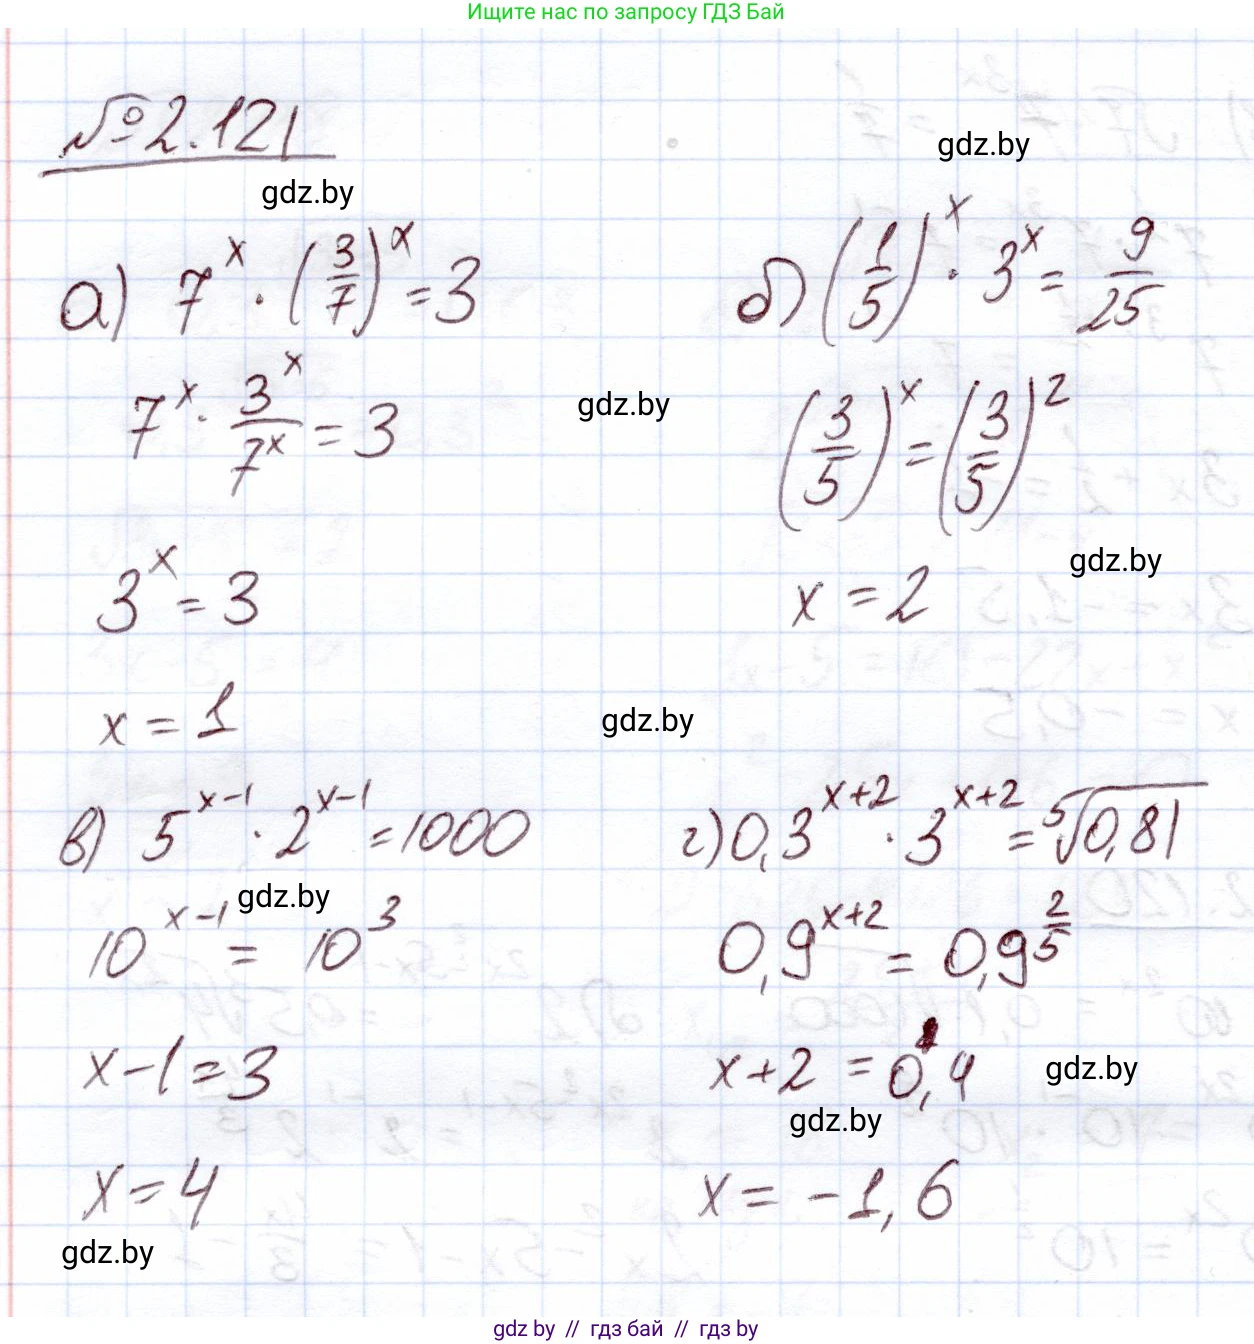 Ищите нас по запросу ГДЗ Бай
№2.121
gdz.by
gdz.by
а) 7^x · (3/7)^x = 3
7^x · 3^x/7^x = 3
3^x = 3
x = 1
gdz.by
б) (1/5)^x · 3^x = 9/25
(3/5)^x = (3/5)^2
gdz.by
x = 2
gdz.by
в) 5^(x-1) · 2^(x-1) = 1000
gdz.by
10^(x-1) = 10^3
x-1=3
x=4
gdz.by
г) 0,3^(x+2) · 3^(x+2) = ⁵√0,81
0,9^(x+2) = 0,9^(2/5)
x+2 = 0,4
gdz.by
gdz.by
x = -1,6
gdz by // гдз бай // гдз by